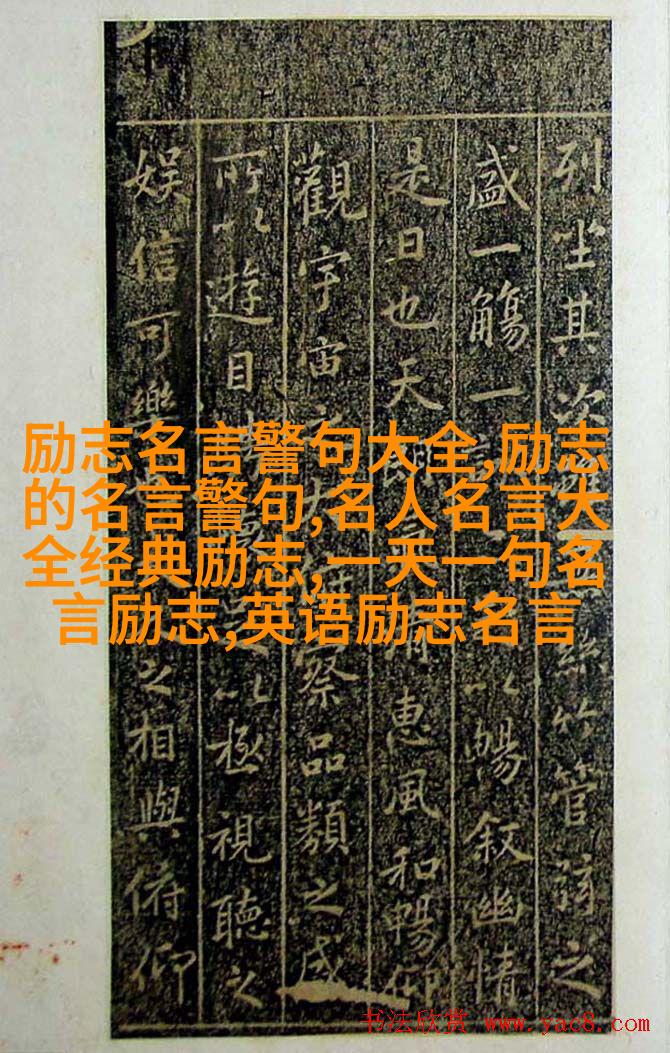 列坐其次絲竹管弦之
盛一觴一以暢叙幽情
是日也天惠風和暢仰
觀宇宙之察品類之盛
所以遊目以極視聽之
娱信可樂之相與俯仰
励志名言警句大全,励志
的名言警句,名人名言大
全经典励志,一天一句名
言励志,英语励志名言
书法欣赏 www.yac8.com